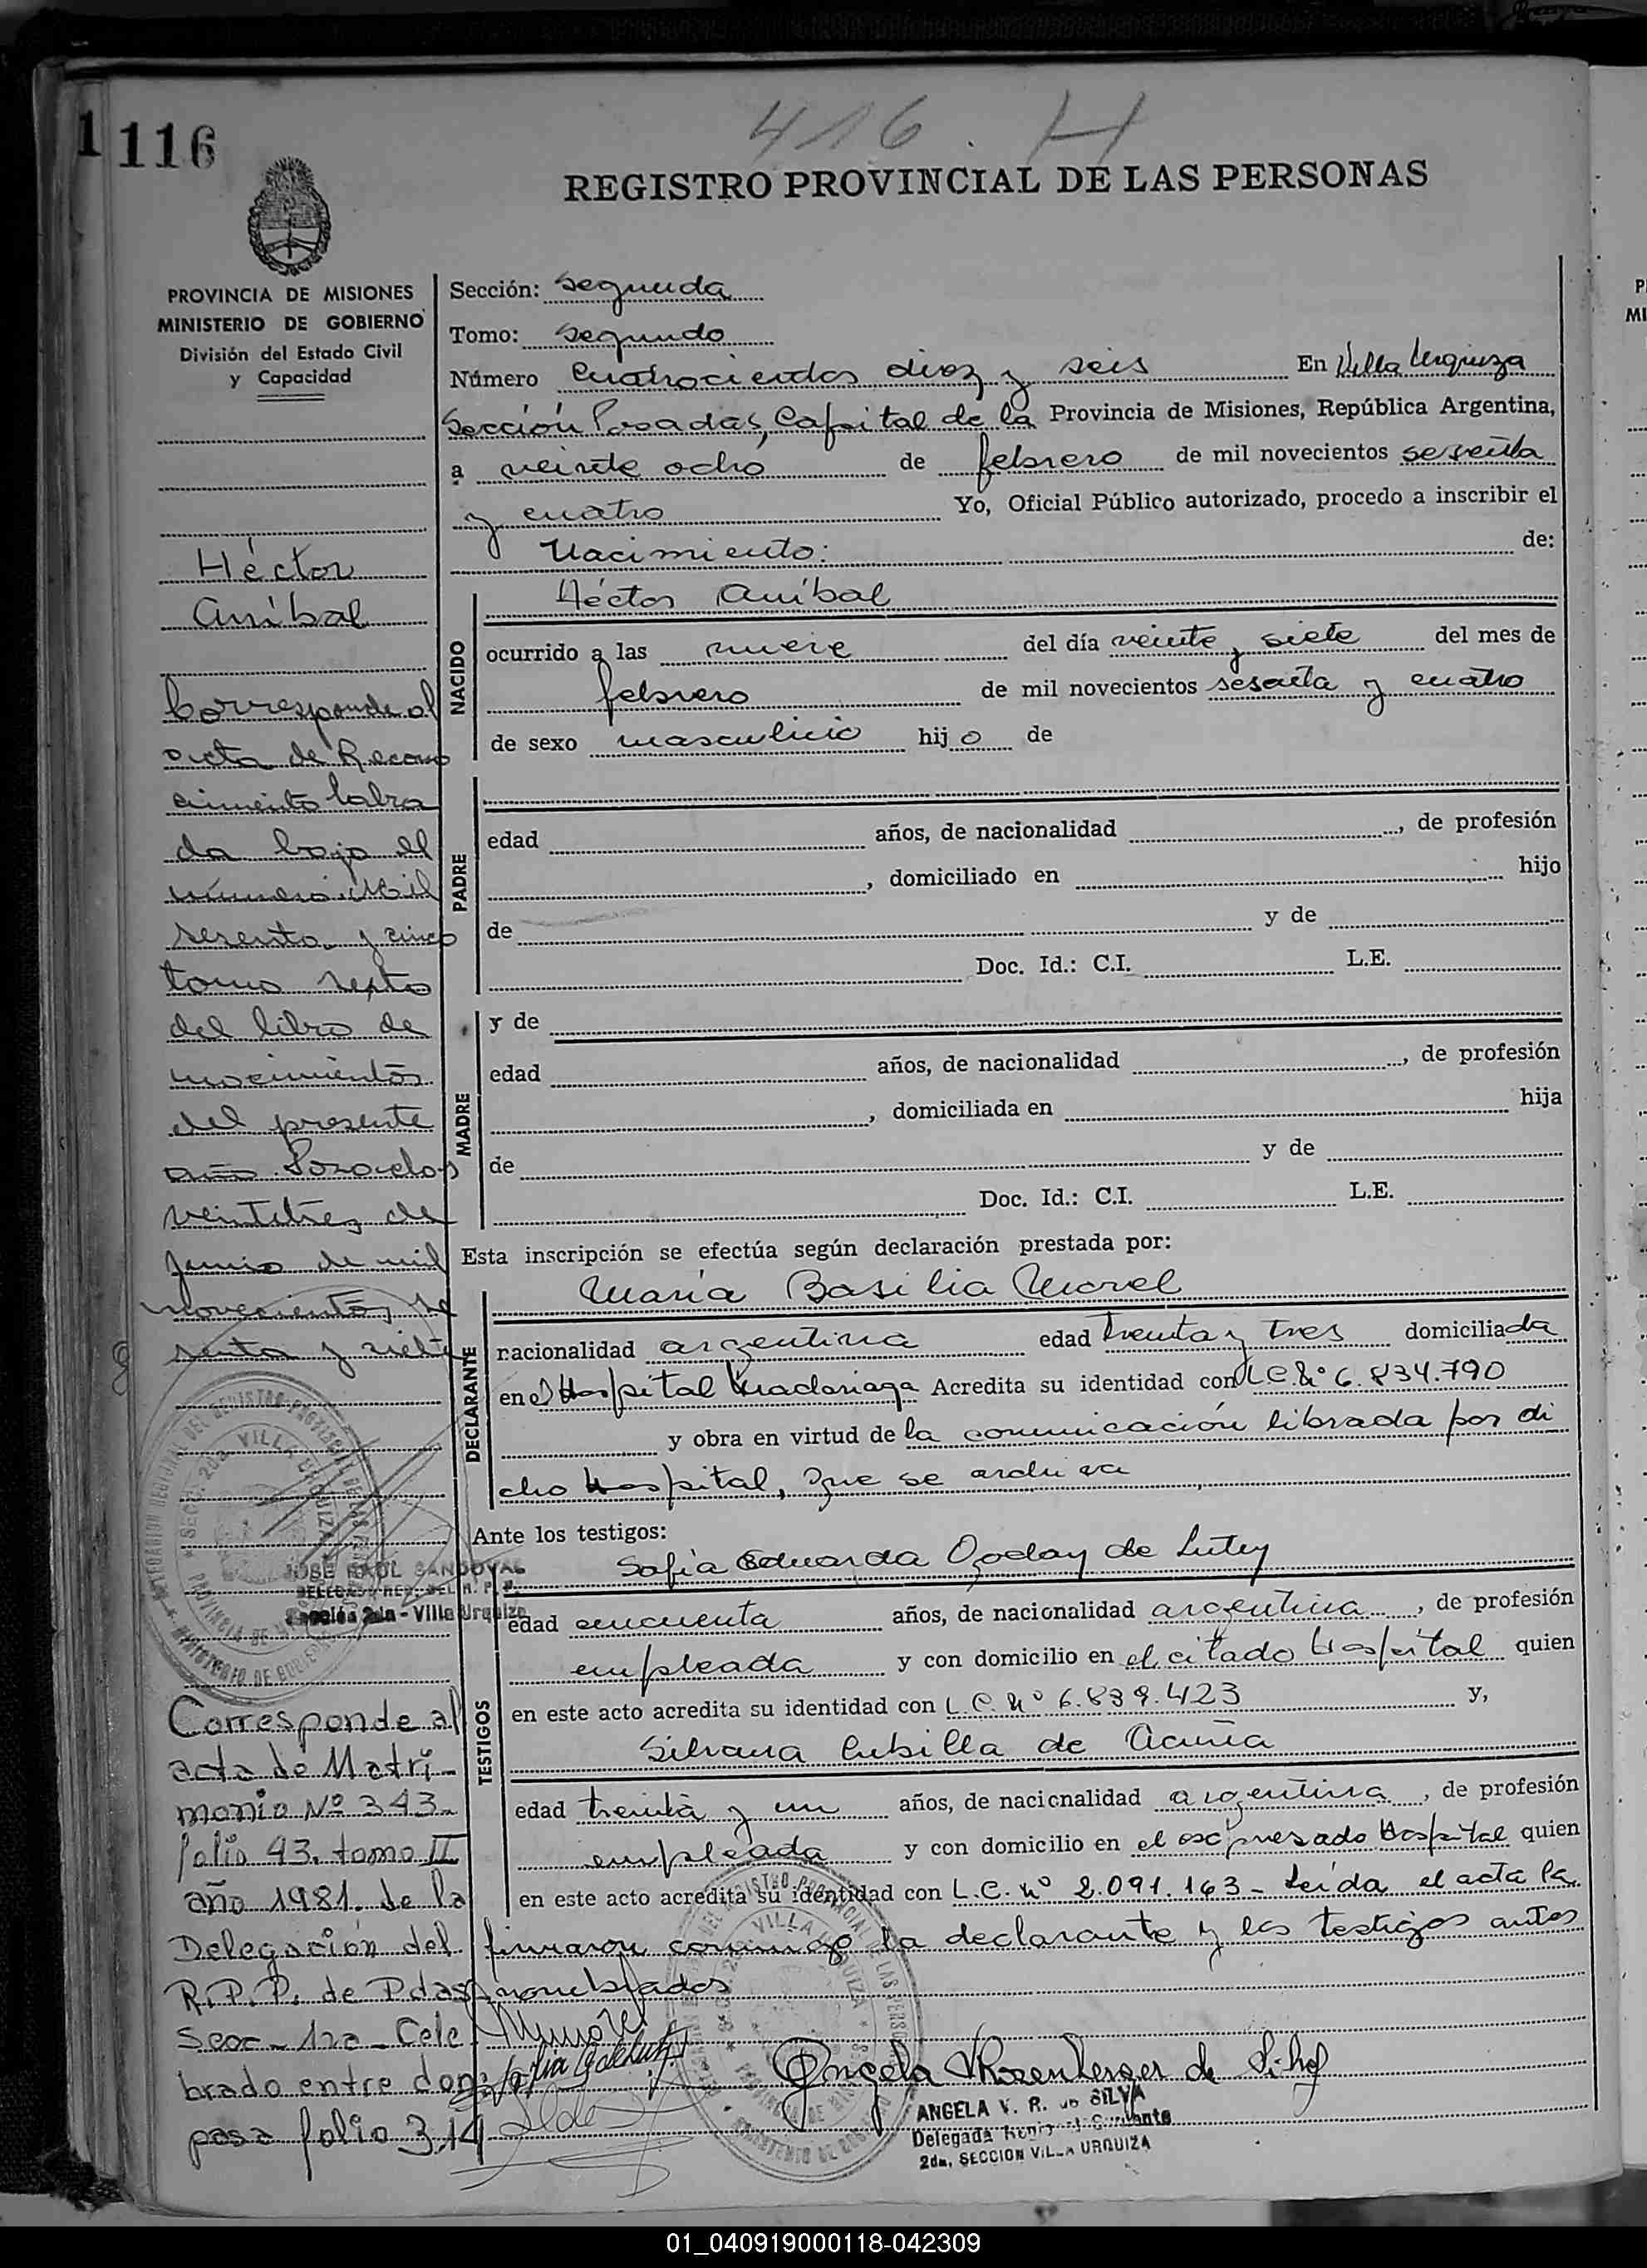 1 116
416 . H
REGISTRO PROVINCIAL DE LAS PERSONAS
PROVINCIA DE MISIONES
MINISTERIO DE GOBIERNO
División del Estado Civil
y Capacidad
Héctor
Aníbal
Corresponde al
acta de Recono
cimiento labra
da bajo el
número Mil
sesenta y cinco
tomo sexto
del libro de
nacimientos
del presente
año Posadas
veintitres de
junio de mil
novecientos se
senta y siete
JOSE RAUL SANDOVAL
DELEGADO REG. DEL R. P. P.
Sección 2da - Villa Urquiza
Corresponde al
acta de Matri-
monio Nº 343-
folio 43. tomo II
año 1981. de la
Delegación del
R.P.P. de Pdas
Secc - 1ra - Cele
brado entre don:
pasa folio 314
Sección: segunda
Tomo: segundo
Número cuatrocientos diez y seis En Villa Urquiza
Sección Posadas, Capital de la Provincia de Misiones, República Argentina,
a veinte ocho de febrero de mil novecientos sesenta
y cuatro Yo, Oficial Público autorizado, procedo a inscribir el
Nacimiento: de:
NACIDO
Héctor Aníbal
ocurrido a las nueve del día veinte y siete del mes de
febrero de mil novecientos sesenta y cuatro
de sexo masculino hijo de
PADRE
edad años, de nacionalidad , de profesión
, domiciliado en hijo
de y de
Doc. Id.: C.I. L.E.
MADRE
y de
edad años, de nacionalidad , de profesión
, domiciliada en hija
de y de
Doc. Id.: C.I. L.E.
Esta inscripción se efectúa según declaración prestada por:
DECLARANTE
María Basilia Morel
nacionalidad argentina edad treinta y tres domiciliada
en el Hospital Madariaga Acredita su identidad con L.C. Nº 6.834.790
y obra en virtud de la comunicación librada por di
cho Hospital, que se archiva
Ante los testigos:
TESTIGOS
Sofía Eduarda Godoy de Lutey
edad cincuenta años, de nacionalidad argentina , de profesión
empleada y con domicilio en el citado Hospital quien
en este acto acredita su identidad con L.C. Nº 6.839.423 y,
Silvana Cubilla de Acuña
edad treinta y un años, de nacionalidad argentina , de profesión
empleada y con domicilio en el expresado Hospital quien
en este acto acredita su identidad con L.C. Nº 2.091.163 - Leída el acta la
firmaron conmigo la declarante y los testigos antes
nombrados
Angela V. Rosenberger de Silva
ANGELA V. R. de SILVA
2da. SECCION VILLA URQUIZA
01_040919000118-042309